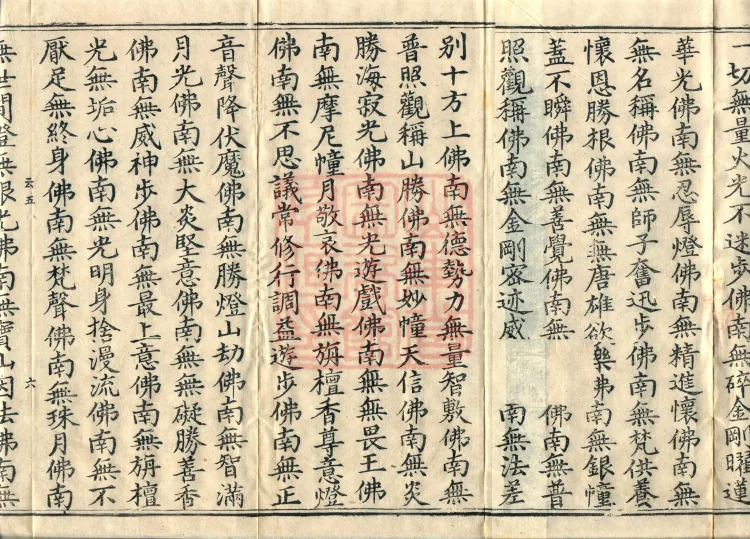 一切無量火光不迷步佛南無碎金剛曜蓮
華光佛南無忍辱燈佛南無精進懷佛南無
無名稱佛南無師子奮迅步佛南無梵供養
懷恩勝根佛南無無唐雄欲樂弗南無銀幢
蓋不瞬佛南無善覺佛南無 佛南無普
照觀稱佛南無金剛密迹威 南無法差
別十方上佛南無德勢力無量智敷佛南無
普照觀稱山勝佛南無妙幢天信佛南無炎
勝海寂光佛南無光遊戲佛南無無畏王佛
南無摩尼幢月敬哀佛南無旃檀香尊意燈
佛南無不思議常修行調益遊步佛南無正
音聲降伏魔佛南無勝燈山劫佛南無智滿
月光佛南無大炎堅意佛南無無礙勝善香
佛南無威神步佛南無最上意佛南無旃檀
光無垢心佛南無光明身捨漫流佛南無不
厭足無終身佛南無梵聲佛南無珠月佛南
云五 六
無世間燈無眼光佛南無寶山因法佛南無